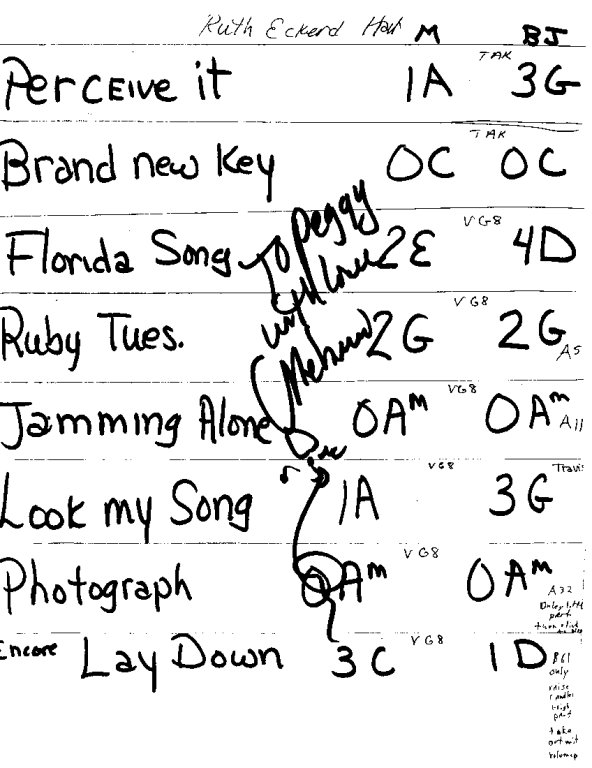 Ruth Eckerd Hall M BJ
Perceive it 1A TAK 3G
Brand new Key 0C TAK 0C
Florida Song 2E VG8 4D
To Peggy
with love
Melanie
Ruby Tues. 2G VG8 2G A5
Jamming Alone 0Am VG8 0Am A11
Look my Song 1A VG8 3G Travis
Photograph 0Am VG8 0Am A32
part
Encore Lay Down 3C VG8 1D B61
only
raise
part
take
out